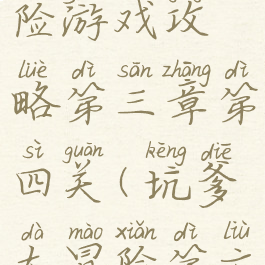 险游戏攻
lüè dì sān zhāng dì
略第三章第
sì guān kēng diē
四关(坑爹
dà mào xiǎn dì liù
大冒险第六